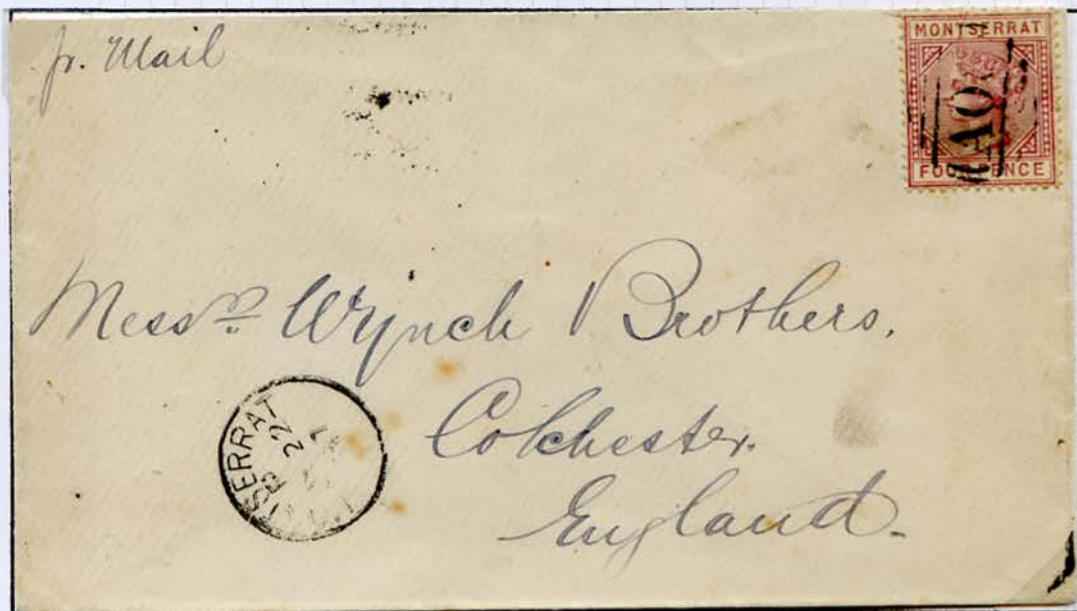 pr. Mail
MONTSERRAT
A08
FOURPENCE
Messrs Wrinch Brothers,
Colchester.
England.
MONTSERRAT
22